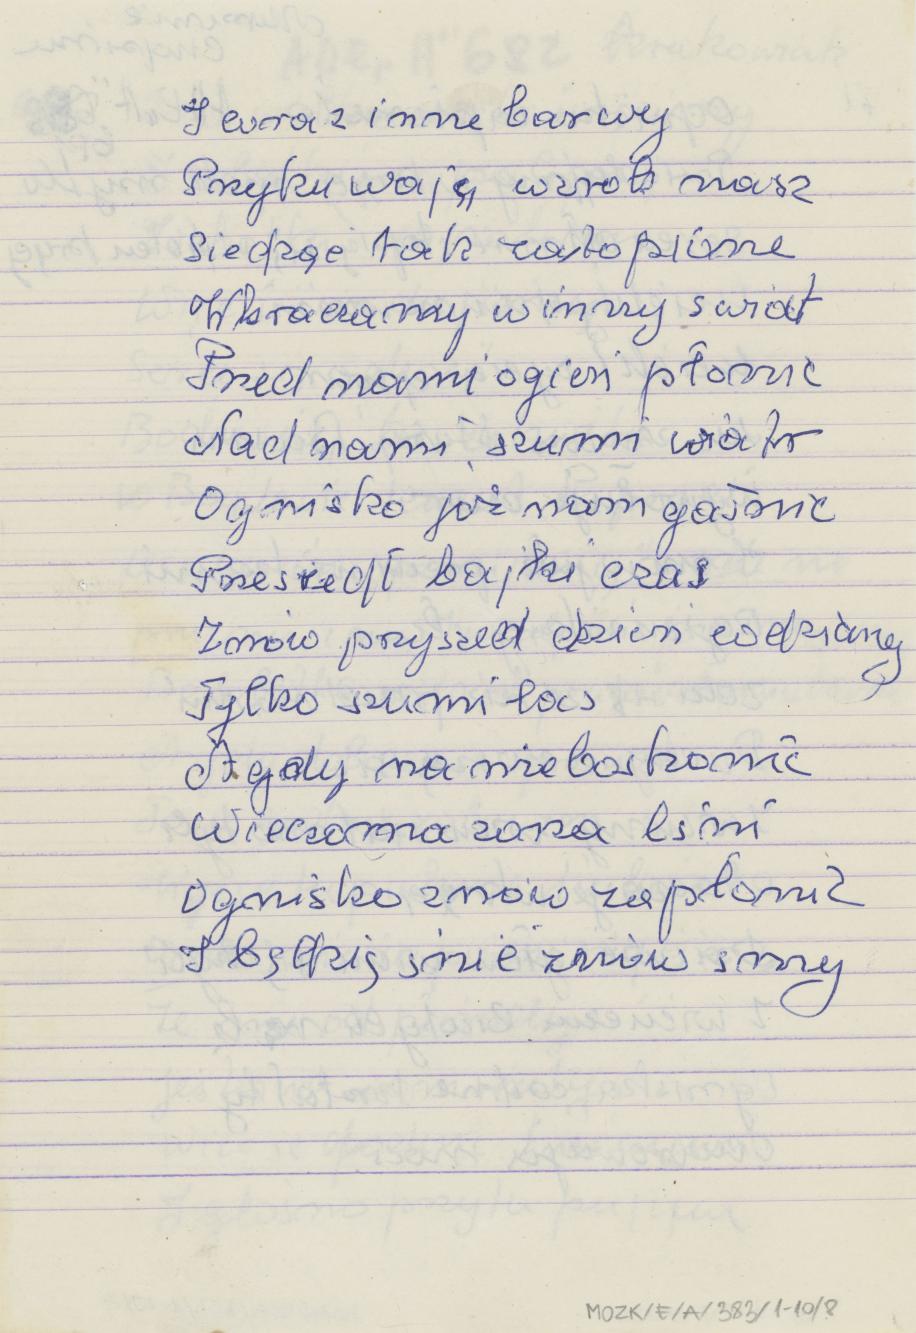 I coraz inne barwy
Przykuwają wzrok nasz
Siedząc tak zatopione
Wkraczamy w inny swiat
Przed nami ogień płonie
Nad nami szumi wiatr
Ognisko już nam gaśnie
Przeszedł bajki czas
Znów przyszed dzień codzienny
Tylko szumi las
A gdy na nieboskonie
Wieczorna zorza lśni
Ognisko znów zapłonie
I będzię śnić znów sny
MOZK/E/A/383/1-10/8